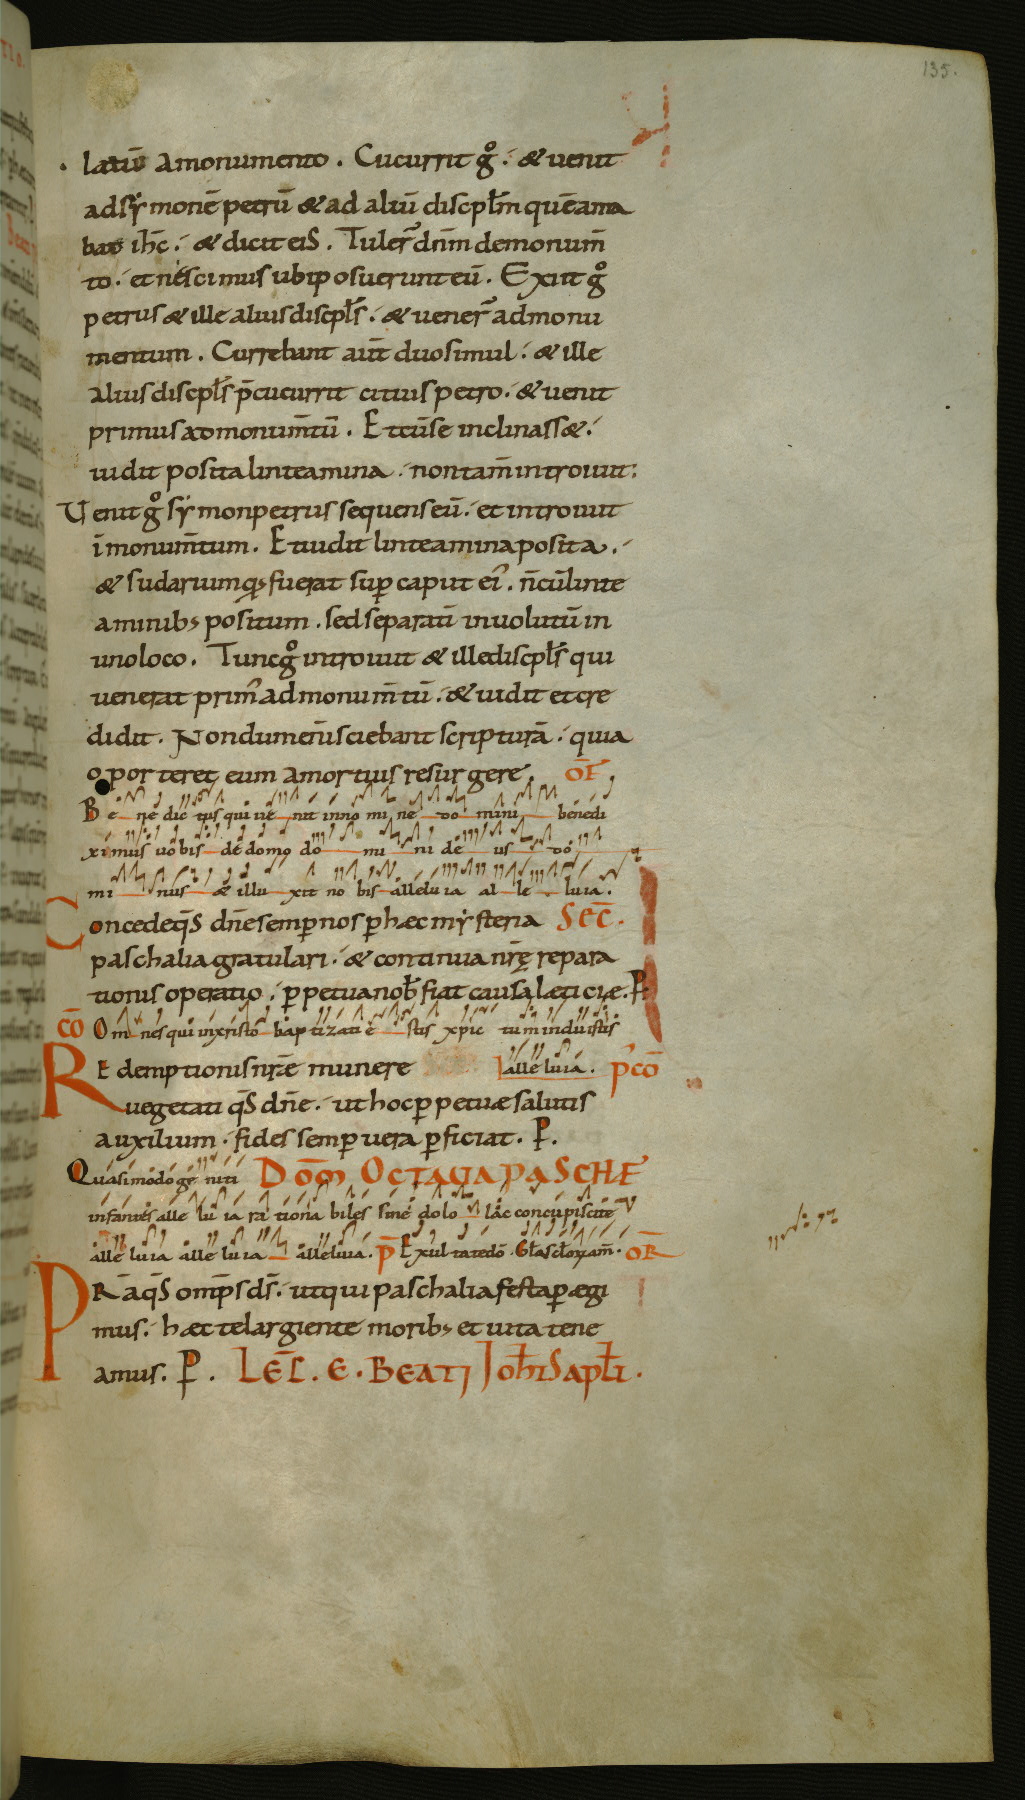 135.
latū amonumento. Cucurrit g̊. & uenit
adsẏmonē petrū & ad aliū discpłm quēama
bat ih̄c. & dicit eiS. Tuler̄ dn̄m demonum̄
to. et nescimus ubiposuerunt eū. Exiit g̊
petrus & ille alius discpłs. & uener̄ admonu
mentum. Currebant aut̄ duo simul. & ille
alius discpłs p̄cucurrit citius petro. & uenit
primus admonum̄tū. Et cūse inclinass&.
uidit posita linteamina. nontam̄ introiuit.
Uenit g̊ sẏmonpetrus sequens eū. et introiuit
ī monum̄tum. Et uidit linteamina posita.
& sudarium qđ fuerat sup̄ caput ei'. n̄ cū linte
aminib; positum. sed separatū inuolutū in
unoloco. Tunc g̊ introiuit & ille discpłs qui
uenerat prim' ad monum̄tū. & uidit et cre
didit. Nondum eni̅ sciebant scripturā. quia
oporteret eum amortuis resurgere. OF̄
Bene dictus qui uenit inno mi ne do mini benedi
ximus uobis de domo do mi ni de us do
mi nus & illu xit no bis alleluia al le luia.
Concede qs̄ dn̄e semp̄ nos p̄ haec mẏsteria SeC̄.
paschalia gratulari. & continua nr̄ę repara
tionis operatio. p̄petua nob̄ fiat causa laeticiae. P̄.
CŌ Omnes qui inxristo baptizati e stis xp̄ic tum induistis
Redemptionis nr̄ae munere alleluia. P̄CŌ
uegetati qs̄ dn̄e. ut hoc p̄petuae salutis
auxilium. fides semp̄ uera p̄ficiat. P̄.
Quasimodo ge niti DOM̄ OCTAUA PASCHAE
infantes alle lu ia ra tiona biles sine dolo lac concupiscite
alle luia alle luia alleluia. P̄ Exultatedō. Głascłoram̄. OR̄
PRA qs̄ omp̄s ds̄. ut qui paschalia festa p̄egi
mus. haec te largiente morib; et uita tene
amus. P̄. LEC̄. E. BEATI Ioh̄iS apłi.